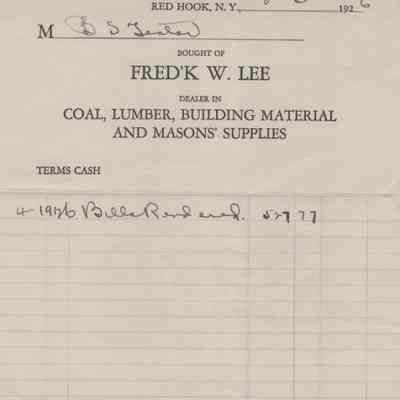 RED HOOK, N. Y., 1926
M
BOUGHT OF
FRED'K W. LEE
DEALER IN
COAL, LUMBER, BUILDING MATERIAL
AND MASONS' SUPPLIES
TERMS CASH
4 1926 Bills Rendered. 527 77